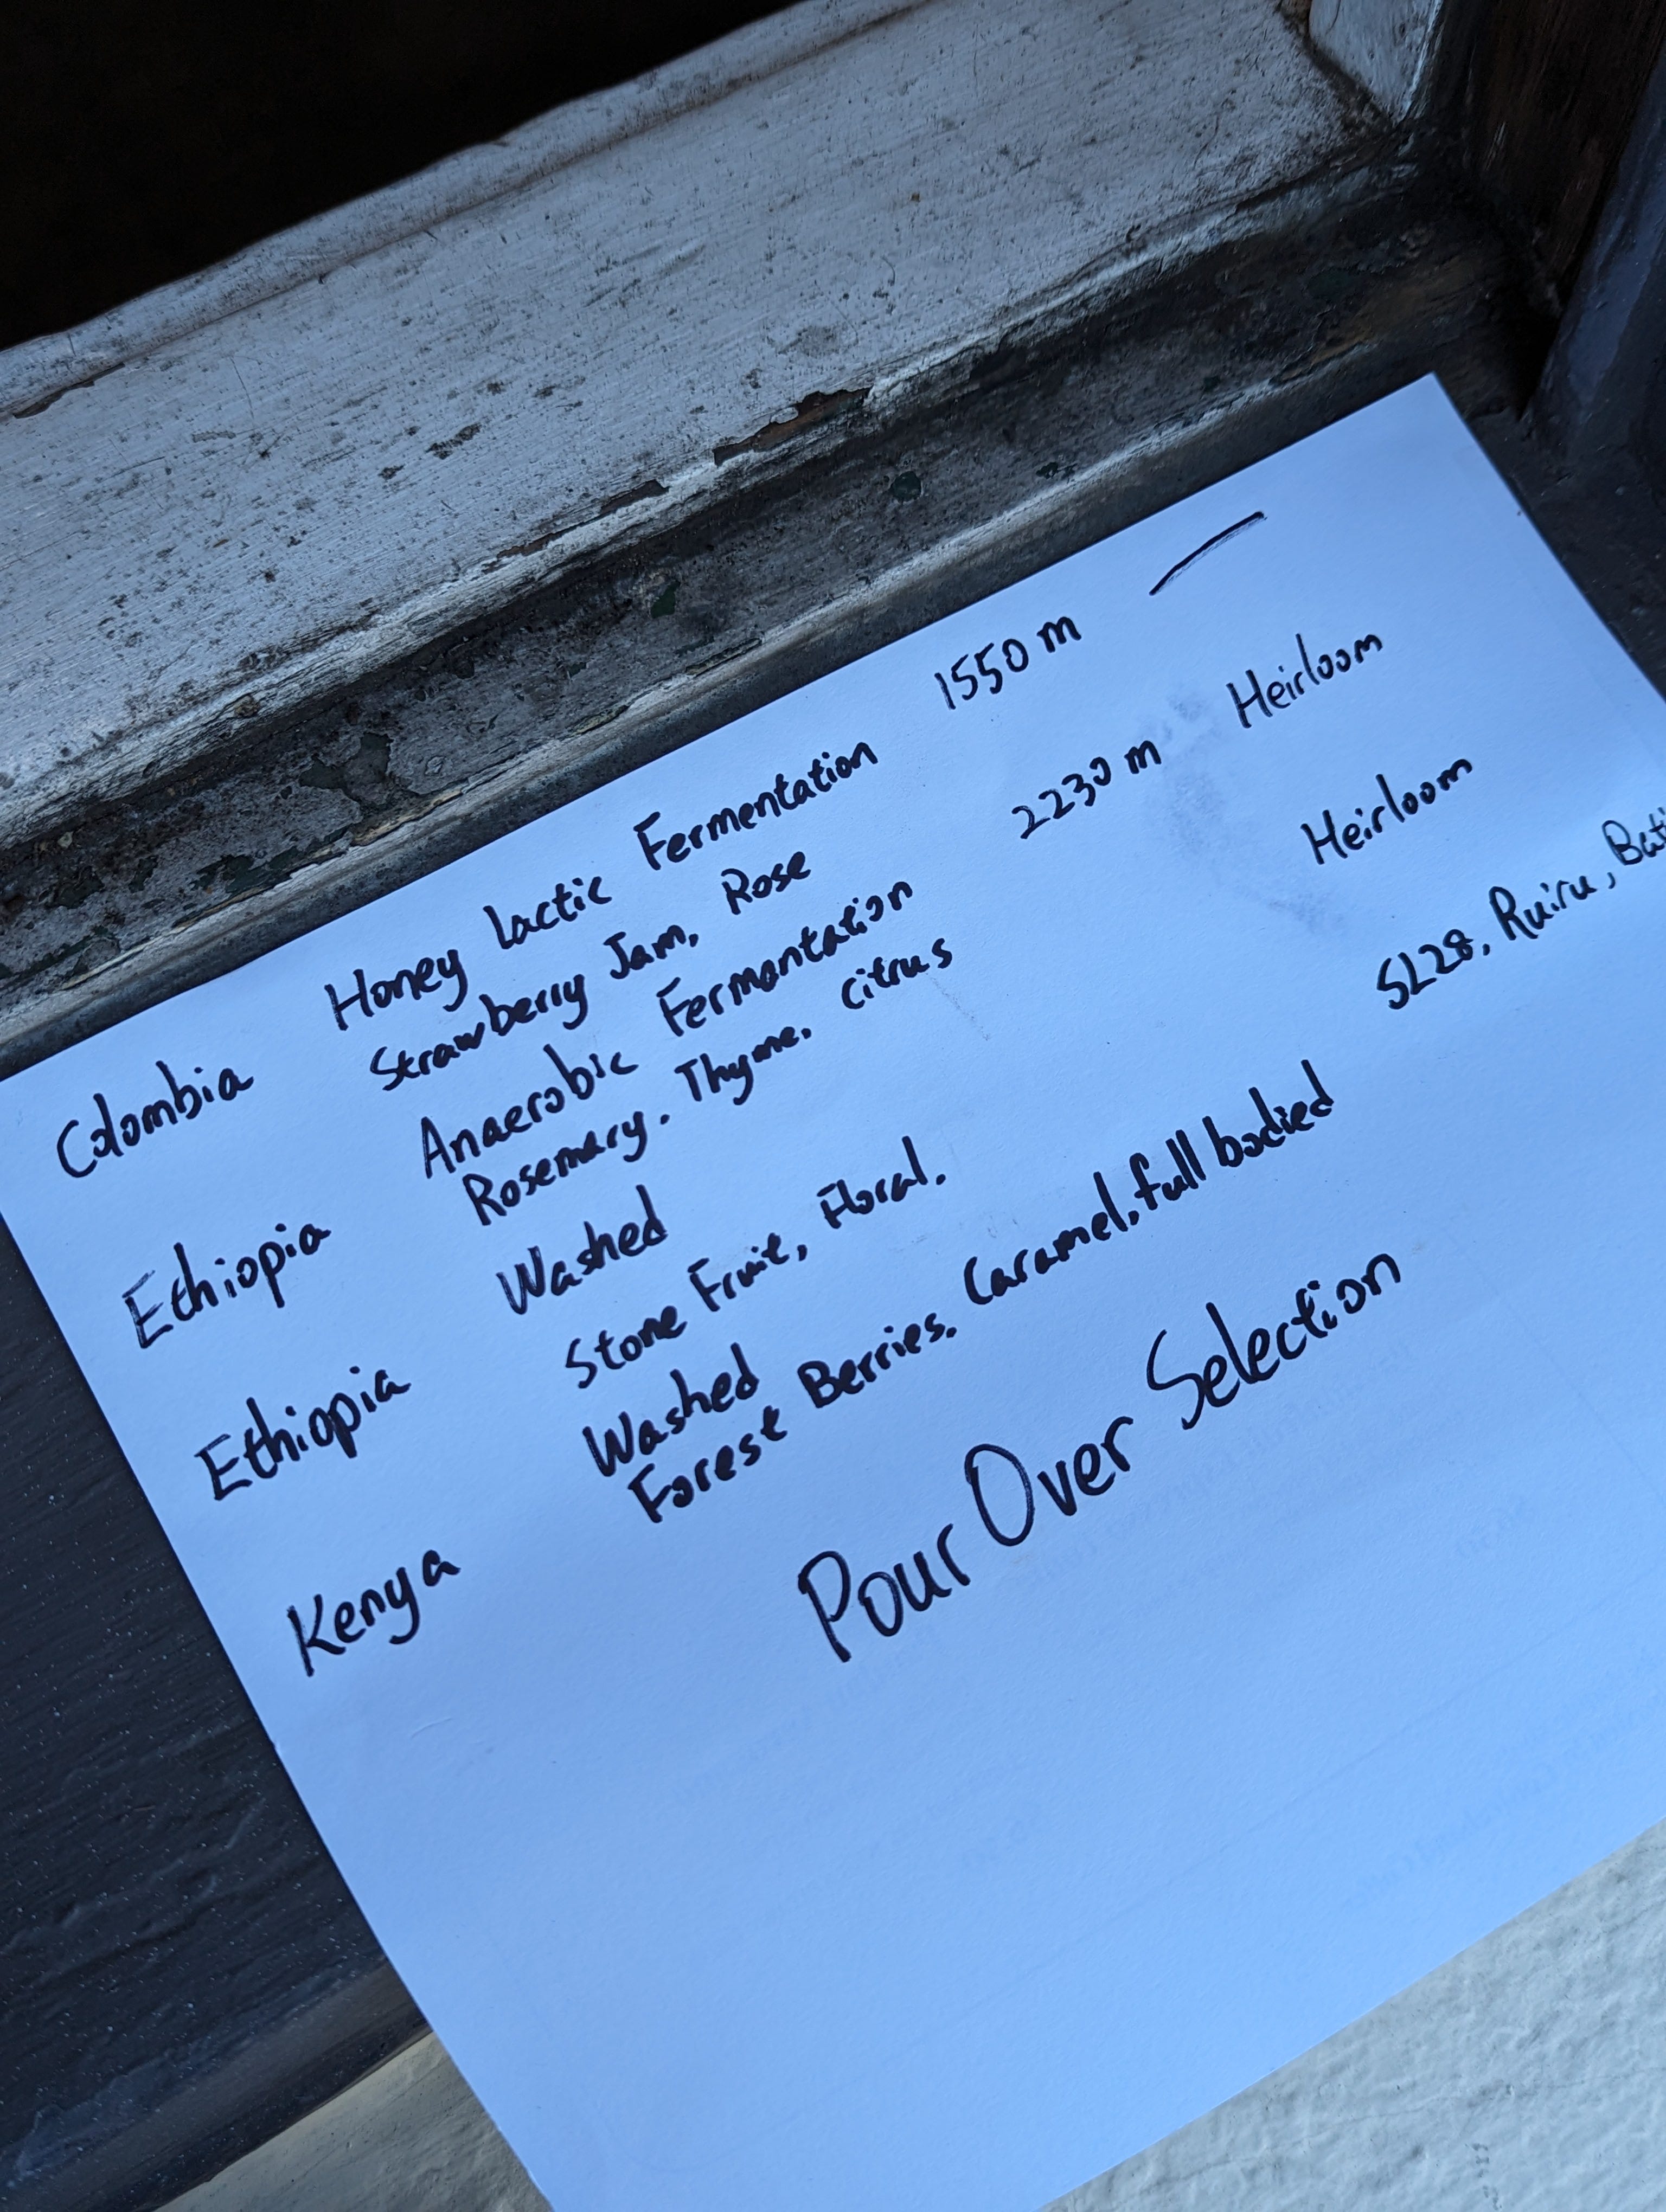 Colombia Honey lactic Fermentation 1550 m —
Strawberry Jam, Rose
Ethiopia Anaerobic Fermentation 2230 m Heirloom
Rosemary. Thyme. Citrus
Ethiopia Washed Heirloom
Stone Fruit, Floral.
Kenya Washed SL28, Ruiru,
Forest Berries. Caramel, full bodied
Pour Over Selection